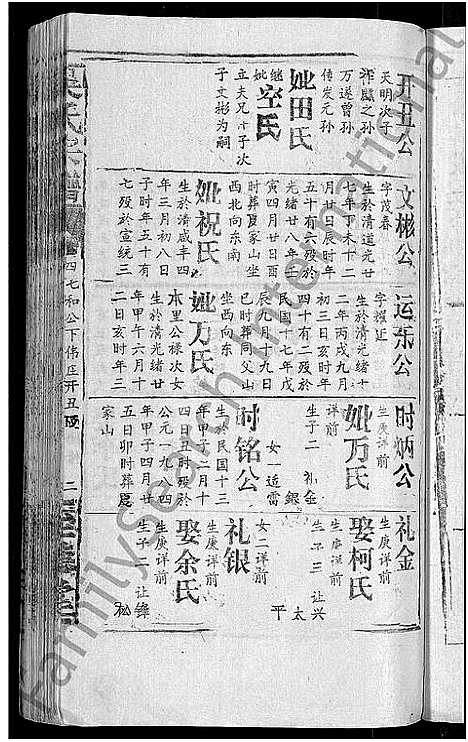 开丑公
天明次子
祚麟之孙
万遂曾孙
传发元孙
妣田氏
继妣空氏
立夫兄十子次
子文彬为嗣
文彬公
字茂春
生於清道光廿
七年丁未十二
月廿日辰时年
五十有六殁於
光绪廿八年壬
寅四月廿日酉
时葬夏家山坐
西北向东南
妣祝氏
生於清咸丰四
年三月初八日
子时年五十有
七殁於宣统三
运乐公
字耀廷
生於清光绪十
二年丙戌九月
初三日亥时年
四十有二殁於
民国十七年戊
辰九月十九日
巳时葬同父山
坐西向东
妣万氏
木里公禄次女
生於清光绪廿
年甲午六月十
二日亥时年
时炳公
生庚详前
妣万氏
详前
生子二
礼金
银
女一适雷
时铭公
生於民国十三
年甲子二月十
四日丑时殁於
公元一九八四
年甲子四月廿
五日卯时葬夏
家山
礼金
生庚详前
娶柯氏
生庚详前
生子三
让兴
太
平
女二详前
礼银
生庚详前
娶余氏
生庚详前
生子二
让锋
松
四七和公下伟庄开丑
二
FamilySearch International